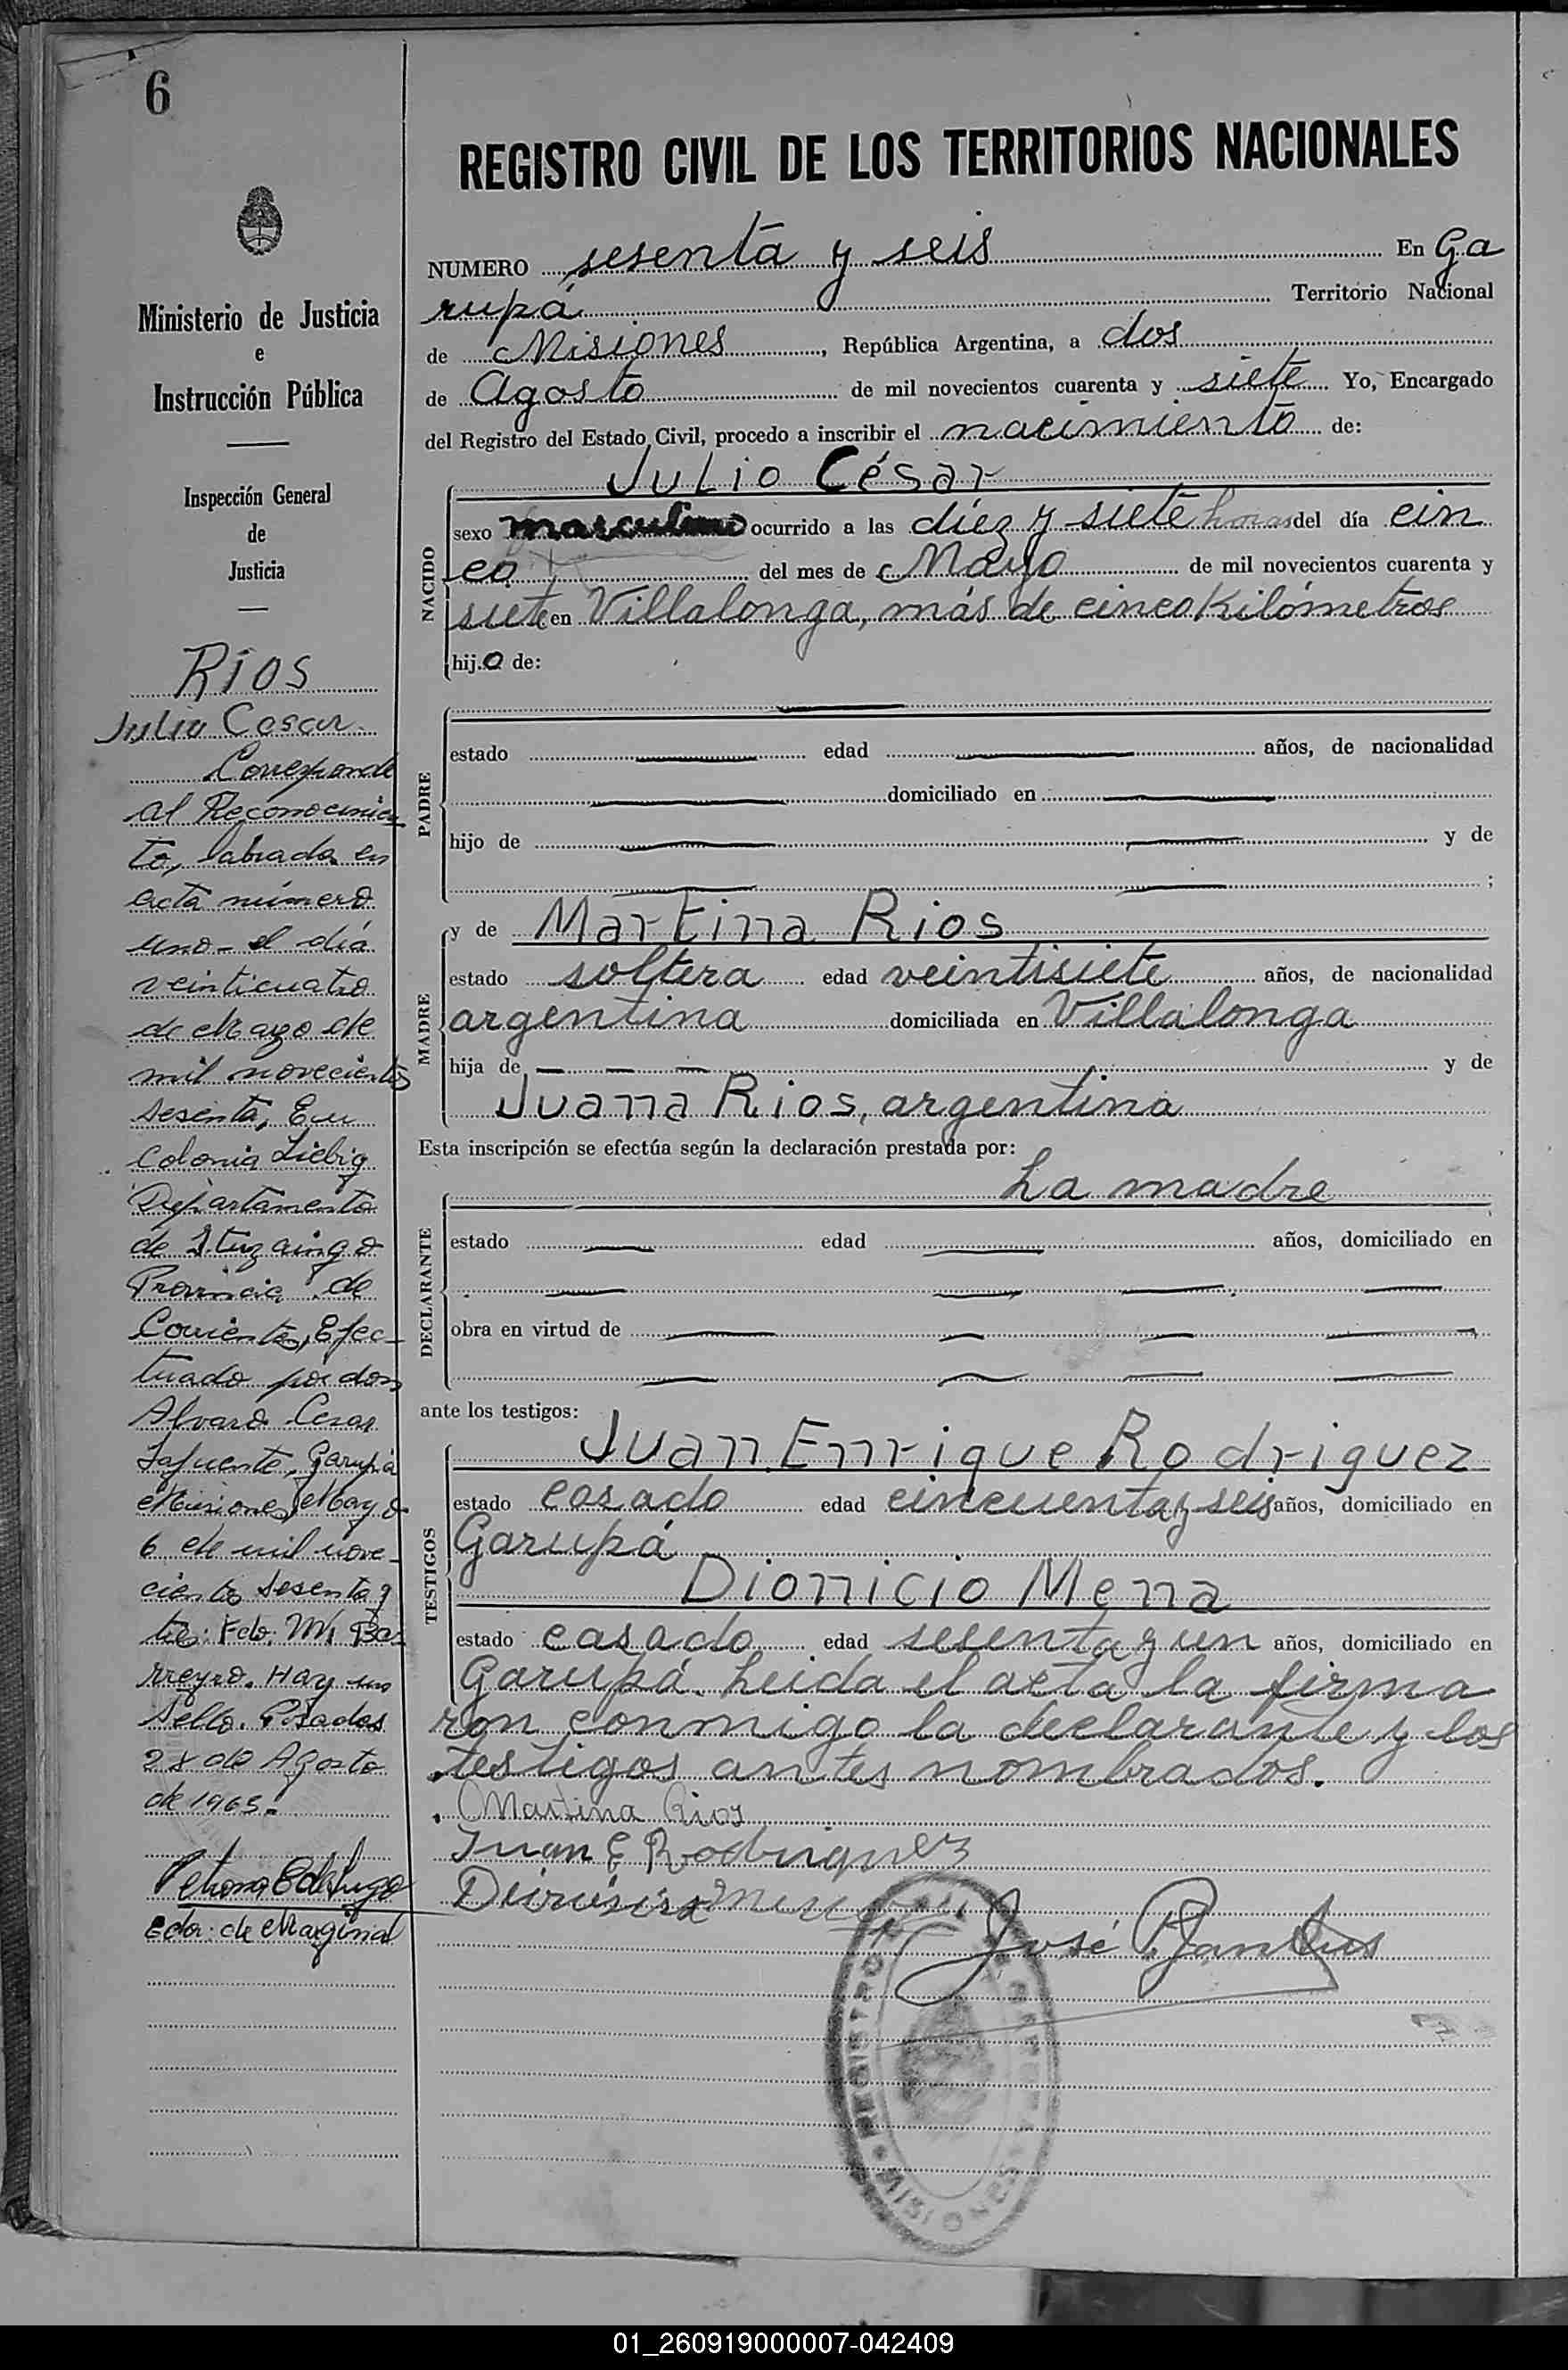 6
Ministerio de Justicia
e
Instrucción Pública
Inspección General
de
Justicia
Rios
Julio Cesar
Corresponde
al Reconocimien
to, labrada en
acta número
uno - el día
veinticuatro
de Mayo de
mil novecientos
sesenta, En
Colonia Liebig
Departamento
de Ituzaingo
Provincia de
Corrientes, Efec-
tuado por don
Alvaro Cesar
Lafuente, Garupá
Misiones, Mayo
6 de mil nove-
cientos sesenta y
tres: Fdo: M. Ba
rreyro. Hay un
Sello. Posadas
de Agosto
de 1965.
Petrona E de Lugo
Eda: de Marginal
REGISTRO CIVIL DE LOS TERRITORIOS NACIONALES
NUMERO sesenta y seis En Ga
rupá Territorio Nacional
de Misiones, República Argentina, a dos
de Agosto de mil novecientos cuarenta y siete Yo, Encargado
del Registro del Estado Civil, procedo a inscribir el nacimiento de:
NACIDO
Julio César
sexo masculino ocurrido a las diez y siete horas del día cin
co del mes de Mayo de mil novecientos cuarenta y
siete en Villalonga, más de cinco kilómetros
hijo de:
PADRE
estado edad años, de nacionalidad
domiciliado en
hijo de y de
;
MADRE
y de Martina Rios
estado soltera edad veintisiete años, de nacionalidad
argentina domiciliada en Villalonga
hija de — — — y de
Juana Rios, argentina
Esta inscripción se efectúa según la declaración prestada por:
DECLARANTE
La madre
estado edad años, domiciliado en
obra en virtud de
ante los testigos:
TESTIGOS
Juan Enrique Rodriguez
estado casado edad cincuenta y seis años, domiciliado en
Garupá
Dionicio Mena
estado casado edad sesenta y un años, domiciliado en
Garupá. Leida el acta la firma
ron conmigo la declarante y los
testigos antes nombrados.
Martina Rios
Juan E Rodriguez
José
REGISTRO
MISIONES
01_260919000007-042409